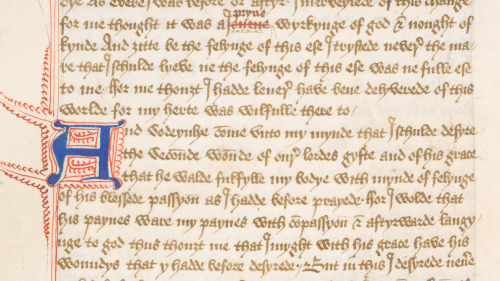 for me thought it was a pryue wyrkynge of god & nought of
kynde And zitte be the felynge of this ese I trystede neuer the ma
re that I schulde lyeve ne the felynge of this ese was ne fulle ese
to me. ffor me thouzt I hadde leuer haue bene delyuerede of this
worlde for my herte was wilfulle there to
And Sodeynlye come vnto my mynde that I schulde desyre
the Seconde wonde of oure lordes gyfte and of his grace
that he walde fulfylle my bodye with mynde of felynge
of his blessede passyon as I hadde before prayede. ffor I wolde that
his paynes ware my paynes with compassyon & aftyrwarde langy
nge to god thus thouzt me that I myght with his grace have his
wonndys that y hadde before desyrede. But in this I desyrede neuer